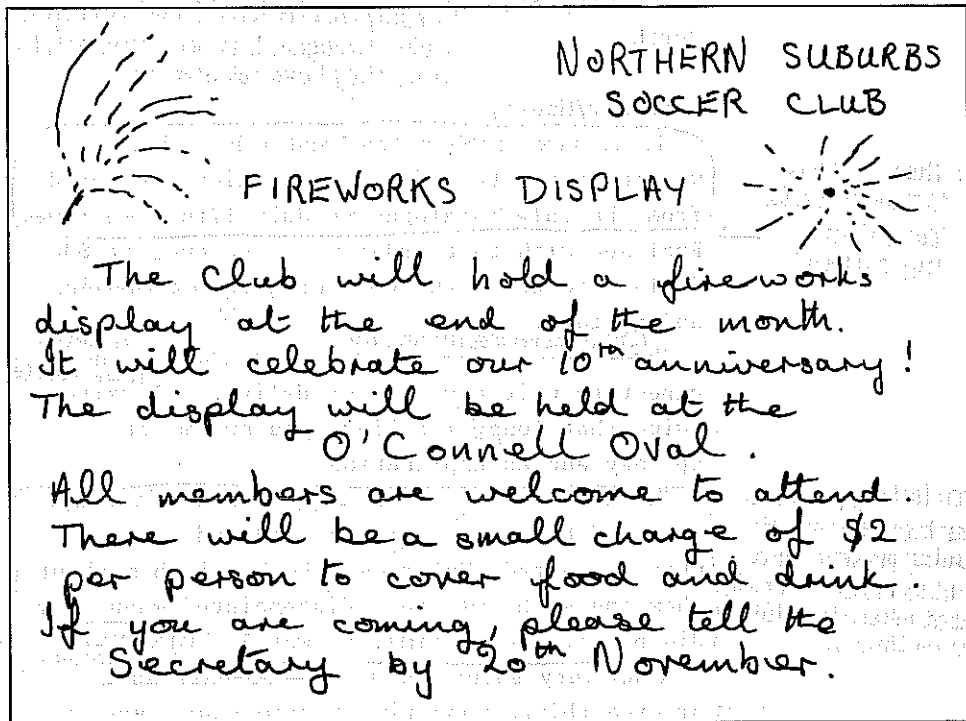 NORTHERN SUBURBS
SOCCER CLUB
FIREWORKS DISPLAY
The Club will hold a fireworks
display at the end of the month.
It will celebrate our 10th anniversary!
The display will be held at the
O'Connell Oval.
All members are welcome to attend.
There will be a small charge of $2
per person to cover food and drink.
If you are coming, please tell the
Secretary by 20th November.